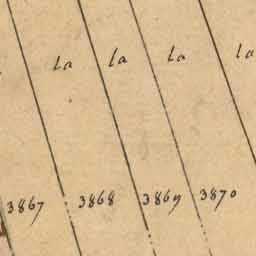 la la la la
3867 3868 3869 3870